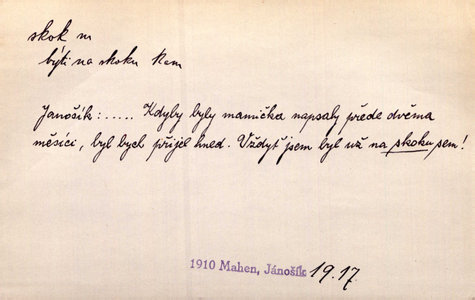 skok m
býti na skoku kam
Janošík: ..... Kdyby byly mamička napsaly přede dvěma
měsíci, byl bych přijel hned. Vždyť jsem byl už na skoku sem!
1910 Mahen, Jánošík 19.17.